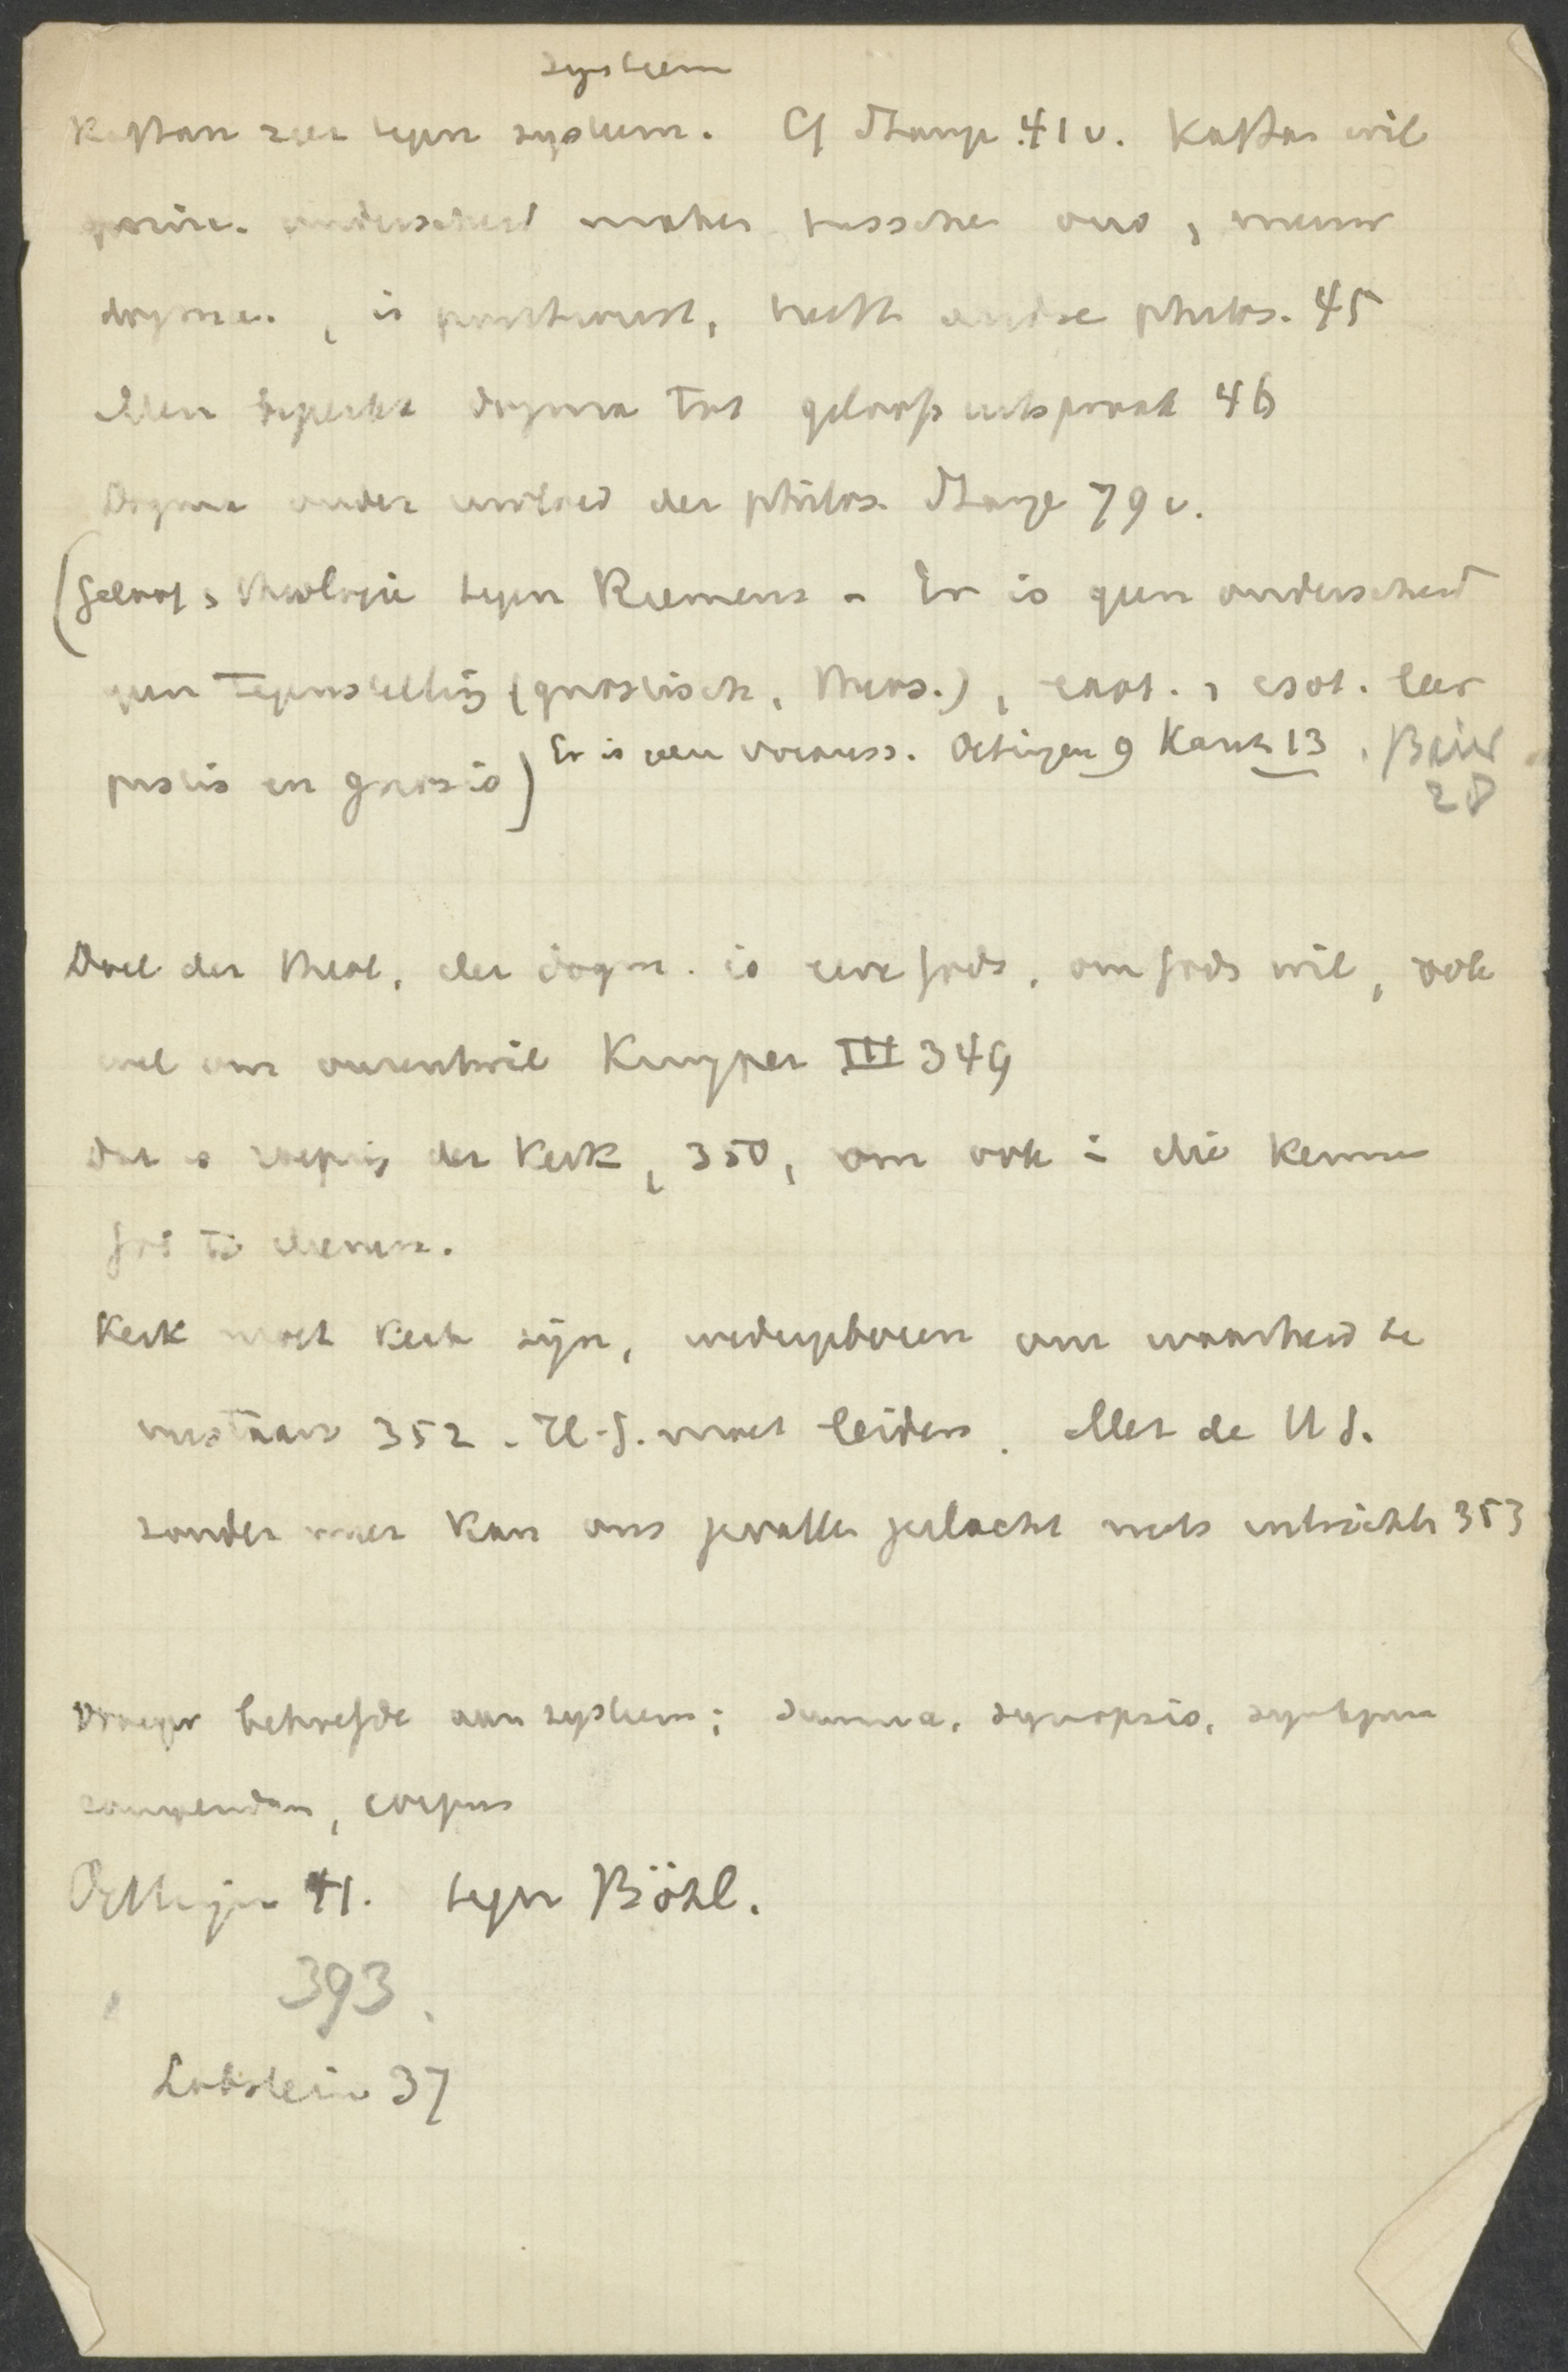 systeem
Kaftan zeer tegen systeem. Cf Stange 41 v. Kaftan wil
onderscheid maken tusschen oud, nieuw
dogma. , is positivist, heeft andere philos. 45
Men beperkt dogma tot geloofsuitspraak 46
Dogma onder invloed der philos. Stange 79 v.
(Geloof, theologie tegen Riemens - Er is geen onderscheid
geen tegenstelling (gnostisch, theos.), exot., esot. leer
pistis en gnosis) Er is een vorauss. Oetingen 9 Kants 13, Beier
28
Doel der theol. der dogm. is eere Gods, om Gods wil, ook
wel om onzentwil Kuyper III 349
Dat is roeping der Kerk, 350, om ook in die kennis
God te dienen.
Kerk moet Kerk zijn, wedergeboren om waarheid te
verstaan 352 - H.G. moet leiden. Met de H S.
zonder meer kan ons gevallen geslacht niets uitrichten 353
Vroeger behoefde aan systeem: summa, synopsis, syntagma
compendium, corpus
Oettingen 41. tegen Böhl.
" 393.
Lobstein 37